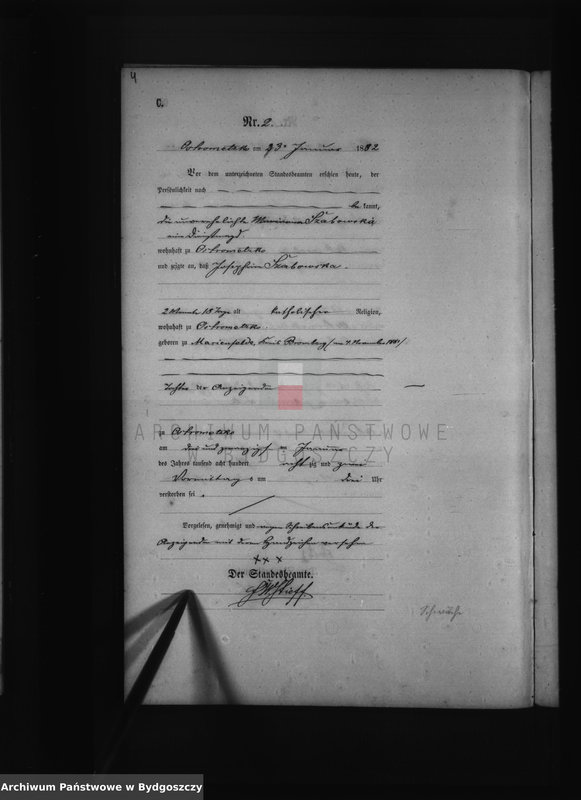 4
C.
Nr. 2.
Ostrometzko am 23. Januar 1882
Vor dem unterzeichneten Standesbeamten erschien heute, der
Persönlichkeit nach
be kannt,
die unverehelichte Marianna Szabowska
eine Dienstmagd
wohnhaft zu Ostrometzko
und zeigte an, daß Josephine Szabowska.
2 Monate 18 Tage alt katholischer Religion,
wohnhaft zu Ostrometzko
geboren zu Marienfelde, Kreis Bromberg, am 4. November 1881
Tochter der Anzeigenden
zu Ostrometzko
am drei und zwanzigsten Januar
des Jahres tausend acht hundert acht zig und zwei
Vormittags um drei Uhr
verstorben sei.
Vorgelesen, genehmigt und wegen Schreibensunkunde der
Anzeigenden mit deren Handzeichen versehen
+++
Der Standesbeamte.
Schwäche
ARCHIWUM PAŃSTWOWE
W BYDGOSZCZY
Archiwum Państwowe w Bydgoszczy